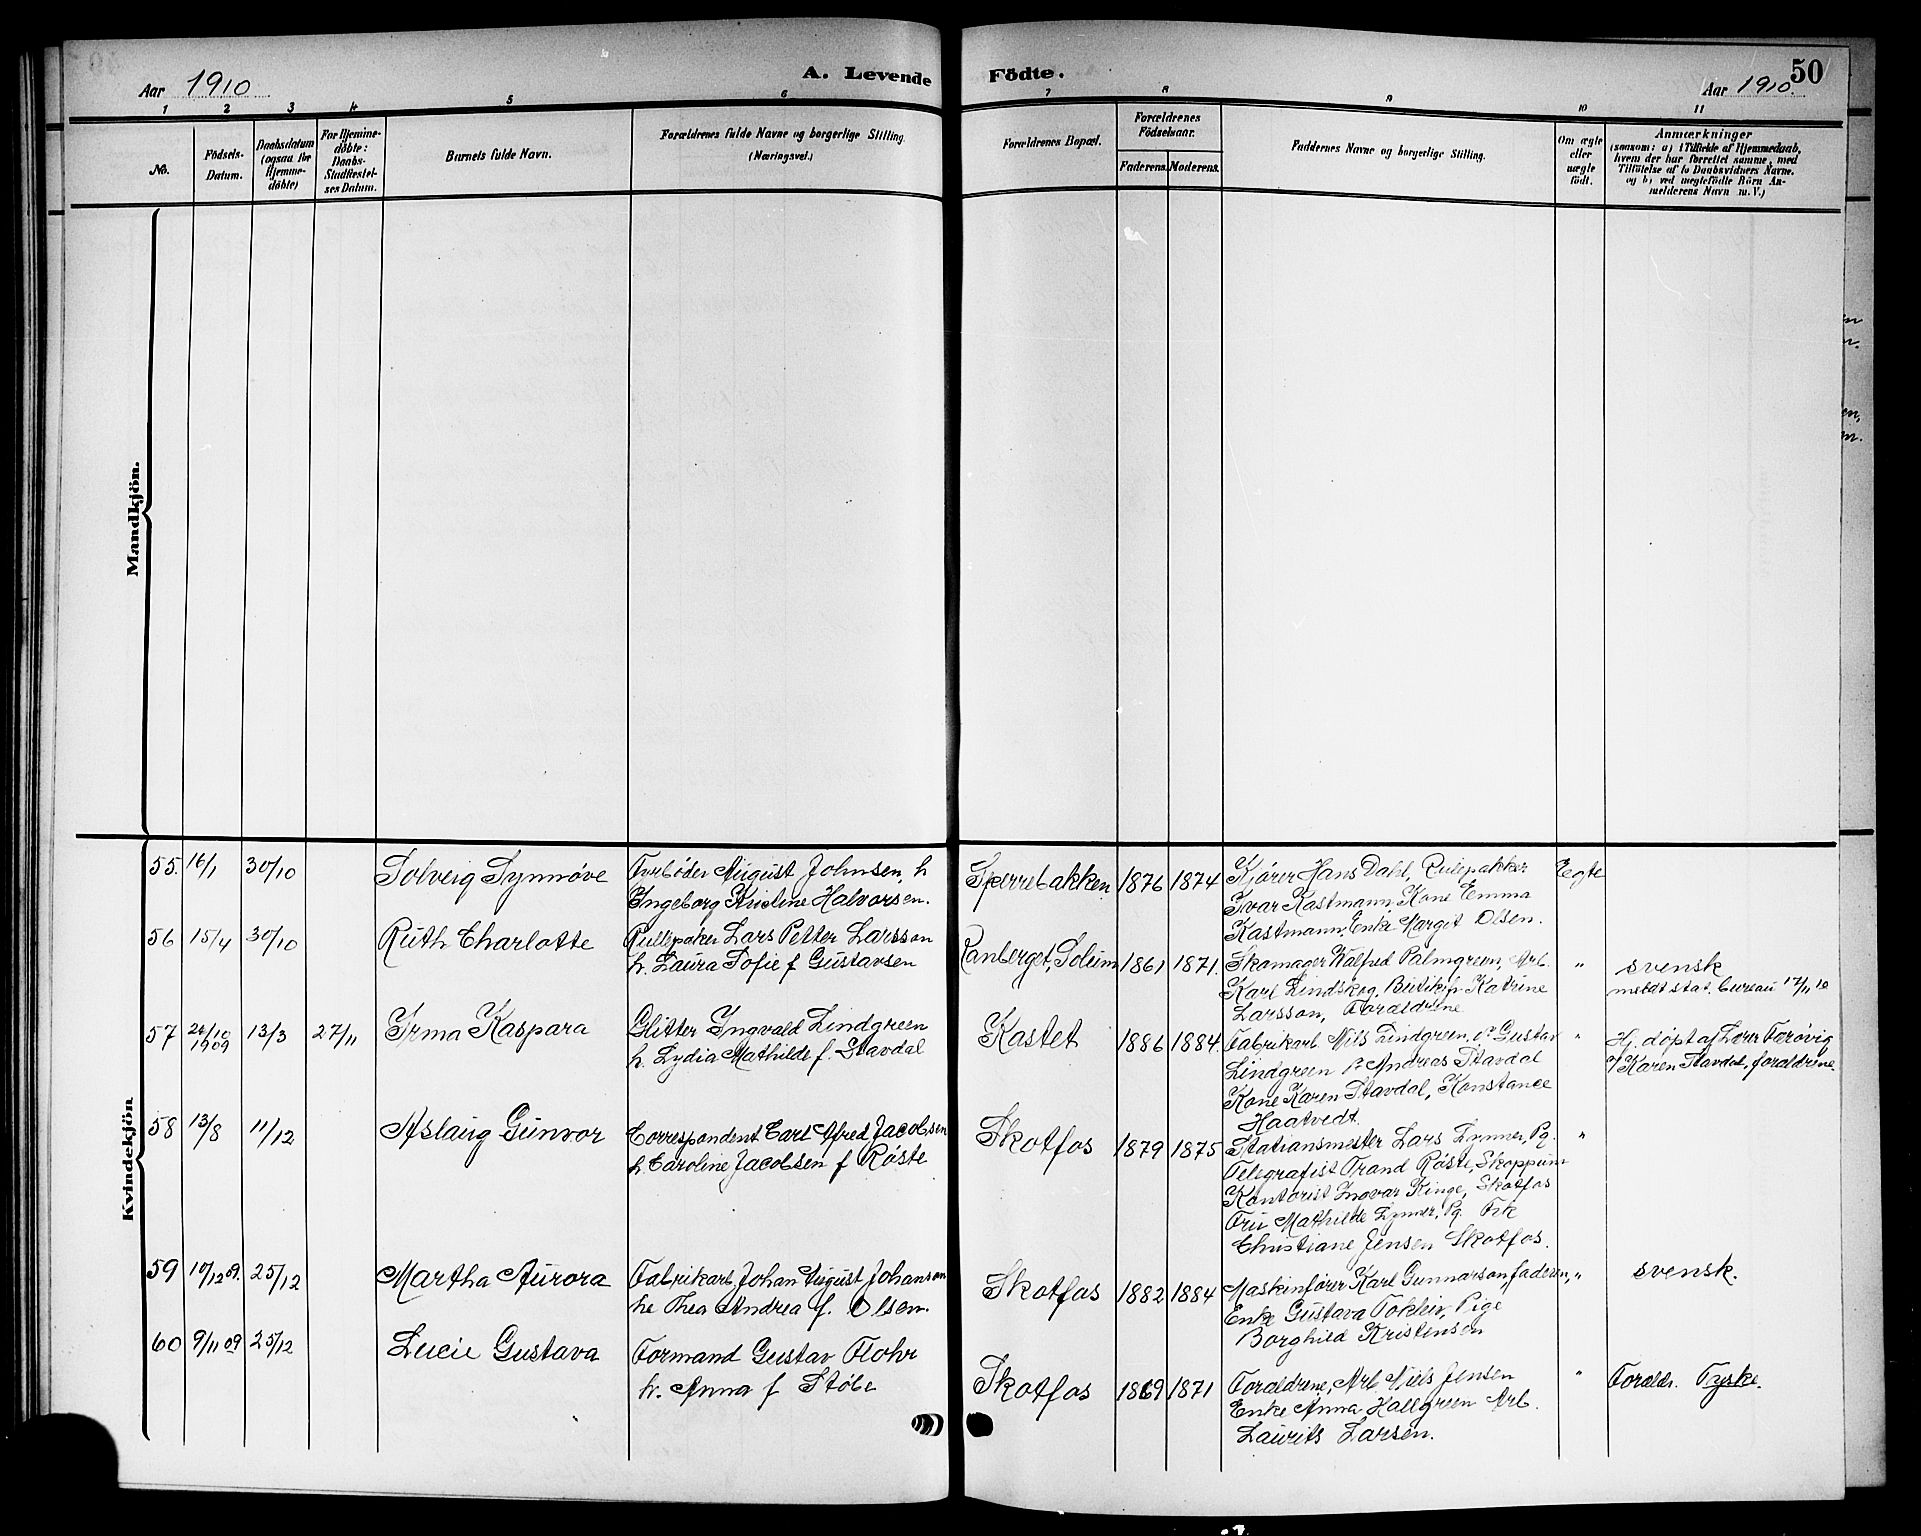 Aar 1910
A. Levende
Födte.
50
Aar 1910.
1 2 3 4 5 6 7 8 9 10 11
No.
Födsels-
Datum.
Daabsdatum
(ogsaa for
Hjemme-
döbte)
For Hjemme-
döbte:
Daabs-
Stadfæstel-
ses Datum.
Barnets fulde Navn.
Forældrenes fulde Navne og borgerlige Stilling.
(Næringsvei.)
Forældrenes Bopæl.
Forældrenes
Födselsaar.
Faderens. Moderens.
Faddernes Navne og borgerlige Stilling.
Om ægte
eller
uægte
födt.
Anmærkninger
(saasom: a) i Tilfælde af Hjemmedaab,
hvem der har forrettet samme, med
Tilföielse af to Daabsvidners Navne.
og b) ved uægtefödte Börn An-
melderens Navn m. V.)
Mandkjön.
Kvindekjön
55. 16/1 30/10 Solveig Synnøve
August Johnsen, h
Ingeborg Kristine Halvorsen.
Sperrebakken 1876 1874
Kjører Hans Dahl, Rulepakker
Ivar Kastmann, Kone Emma
Kastmann, Enke Margit Olsen.
Egte
56 15/4 30/10 Ruth Charlotte
Rullepaker Lars Petter Larsson
h. Laura Sofie f Gustavsen
Ranberget, Solum 1861 1871.
Skomager Walfred Palmgreen, Arb.
Karl Lindskog, Katrine
Larsson, Forældrene
"
svensk
meldt stat. bureau 17/11 10
57 24/10 1909 13/3 27/11 Irma Kaspara
Glitter Ingvald Lindgreen
h. Lydia Mathilde f. Stavdal
Kastet 1886 1884.
Fabrikarb. Nils Lindgreen, Gustav
Lindgreen Andreas Stavdal
Kone Karen Stavdal, Konstance
Haatvedt.
"
Hj. døpt af Lærer Førøvig
Karen Stavdal, forældrene.
58 13/8 11/12 Aslaug Gunvor
Correspondent Carl Alfred Jacobsen
h Caroline Jacobsen f Røste
Skotfos 1879 1875
Stationsmester Lars Lynner, Pg.
Telegrafist Trand Røste, Skoppum
Kontorist Ingvar Kinge, Skotfos
Fru Mathilde Lynner, Pg. Frk
Christiane Jensen Skotfos.
"
59 10/12 09. 25/12 Martha Aurora
Fabrikarb. Johan August Johanson
hu Thea Andrea f. Olsen.
Skotfos 1882 1884
Maskinfører Karl Gunnarson, faderen,
Enke Gustava Pige
Borghild Kristenson
"
svensk.
60 9/11 09 25/12 Lucie Gustava
Formand Gustav Flohr
h. Anna f Støbe
Skotfos 1869 1871
Forældrene, Arb. Niels Jensen
Enke Anna Hallgreen Arb.
Laurits Larsen.
"
Forældr. Tyske.